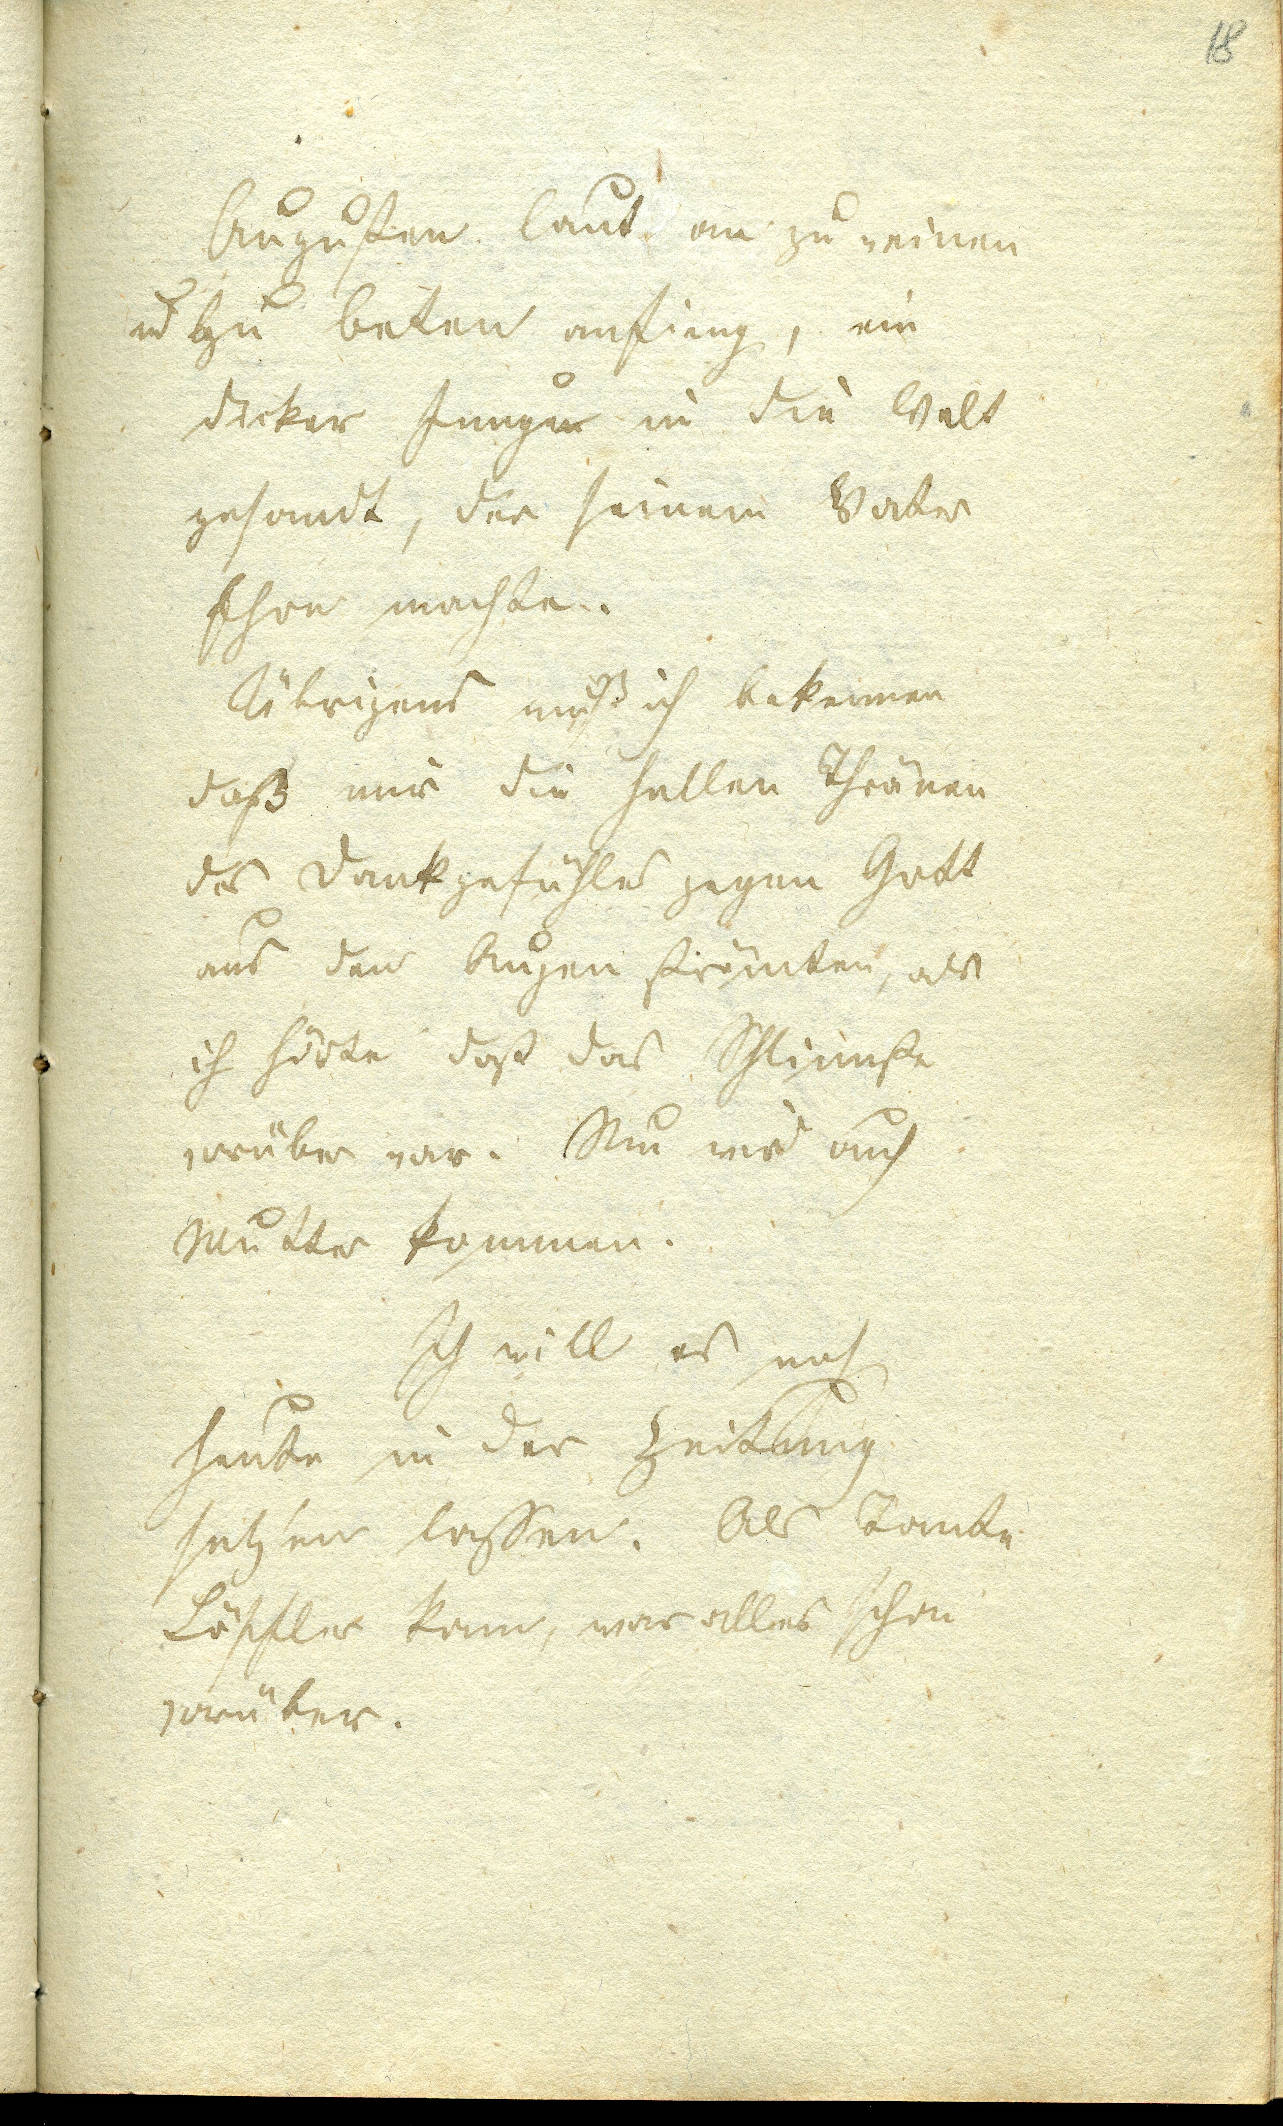 18
Augusten laut an zu weinen
und zu beten anfieng, ein
dicker Junge in die Welt
gesandt, der seinem Vater
Ehre machte.
Übrigens muß ich bekennen
daß mir die hellen Thränen
des Dankgefühles gegen Gott
aus den Augen strömten, als
ich hörte daß das Schlimste
vorüber war. Nun wird auch
Mutter kommen.
Ich will es noch
heute in der Zeitung
setzen lassen. Als Tante
Löffler kam, war alles schon
vorüber.